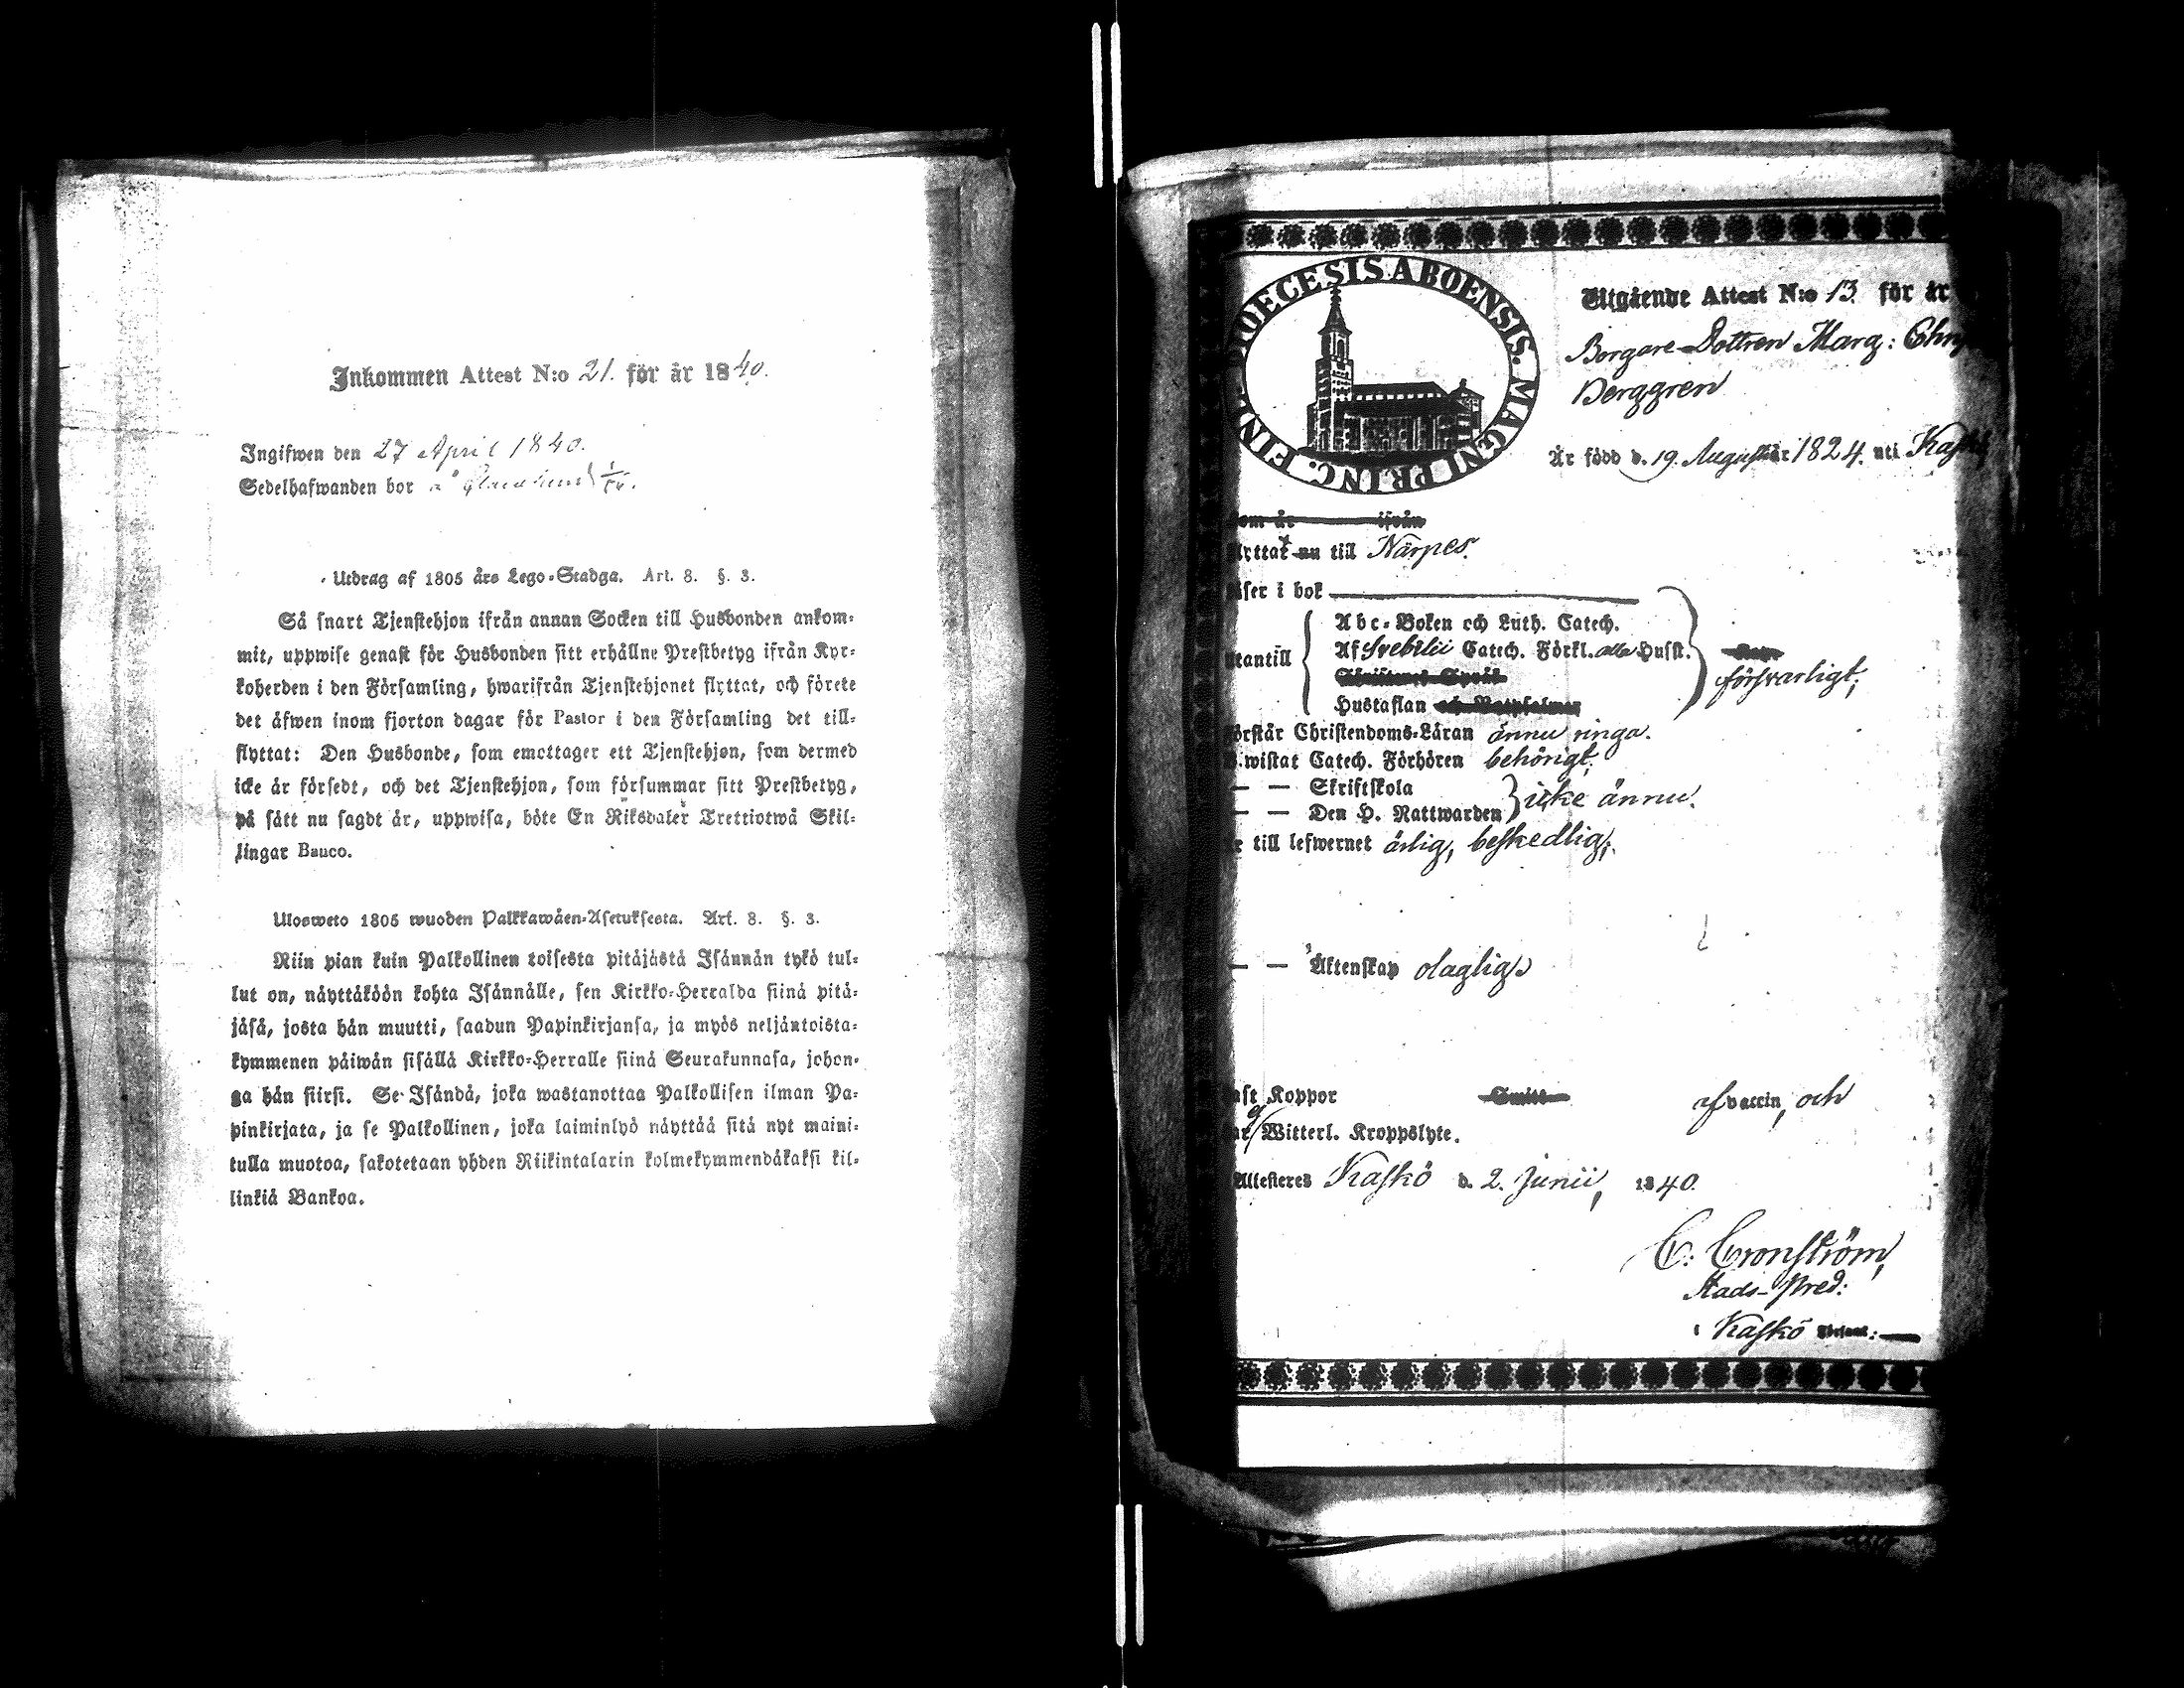 Inkommen Attest N:o 21. för år 1840.
Ingifwen den 27 April 1840.
Sedelhafwanden bor å
Utdrag af 1805 års Lego-Stadga. Art. 8. §. 3.
Så snart Tjenstehjon ifrån annan Socken till Husbonden ankom-
mit, uppwise genast för Husbonden sitt erhållne Prestbetyg ifrån Kyr-
koherden i den Församling, hwarifrån Tjenstehjonet flyttat, och förete
det äfwen inom fjorton dagar för Pastor i den Församling det till-
flyttat: Den Husbonde, som emottager ett Tjenstehjon, som dermed
icke är försedt, och det Tjenstehjon, som försummar sitt Prestbetyg,
på sätt nu sagdt är, uppwisa, böte En Riksdaler Trettiotwå Skil-
lingar Banco.
Ulosweto 1805 wuoden Palkkawäen-Asetuksesta. Art. 8. §. 3.
Niin pian kuin Palkollinen toisesta pitäjästä Isännän tykö tul-
lut on, näyttäköön kohta Isännälle, sen Kirkko-Herralda siinä pitä-
jäsä, josta hän muutti, saadun Papinkirjansa, ja myös neljäntoista-
kymmenen päiwän sisällä Kirkko-Herralle siinä Seurakunnasa, johon-
ga hän siirsi. Se Isändä, joka wastanottaa Palkollisen ilman Pa-
pinkirjata, ja se Palkollinen, joka laiminlyö näyttää sitä nyt maini-
tulla muotoa, sakotetaan yhden Riikintalarin kolmekymmendäkaksi kil-
linkiä Bankoa.
DIOECESIS ABOENSIS. MAGNI PRINC. FINL
Utgående Attest N:o 13. för år
Borgare-Dottren Marg:
Berggren
Är född d. 19. August år 1824. uti Kaskö
som är ifrån
flyttar nu till Närpes.
läser i bok
utantill
Abc-Boken och Luth. Catech.
Af Svebilii Catech. Förkl. alla Husst.
Hustaflan
försvarligt,
förstår Christendoms-Läran ännu ringa.
B.wistat Catech. Förhören behörigt.
— — Skriftskola
— — Den H. Nattwarden } icke ännu.
är till lefwernet ärlig, beskedlig,
— — Äktenskap olaglig
haft Koppor Smitt af vaccin, och
ej Witterl. Kroppslyte.
Attesteres Kaskö d. 2. Junii, 1840.
C: Cronström,
Stads-Pred:
i Kaskö Församl: